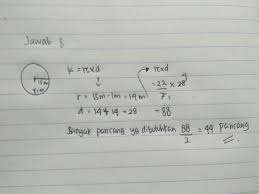 Jawab 8
15m
1m
K = π x d
r = 15m - 1m = 14m
d = 14 + 14 = 28
π x d
= 22/7 x 28
= 88
Banyak pancang yg dibutuhkan 88/2 = 44 pancang